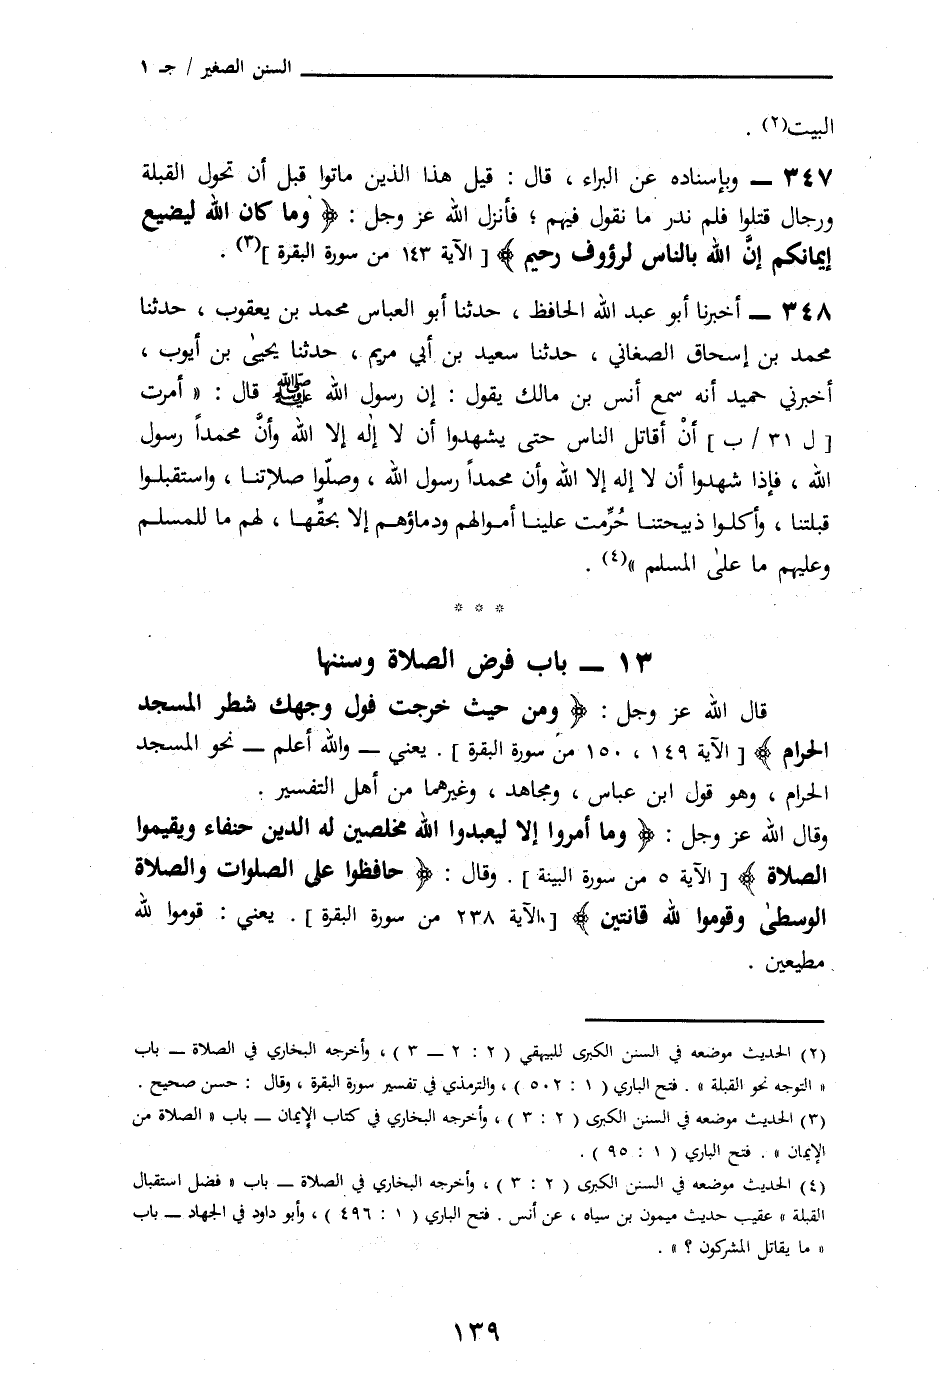 السنن الصغير / جـ ١
البيت(٢) .
٣٤٧ ــ وبإسناده عن البراء ، قال : قيل هذا الذين ماتوا قبل أن تحول القبلة
ورجال قتلوا فلم ندر ما نقول فيهم ؛ فأنزل الله عز وجل : ﴿ وما كان الله ليضيع
إيمانكم إنَّ الله بالناس لرؤوف رحيم ﴾ [ الآية ١٤٣ من سورة البقرة ](٣) .
٣٤٨ ــ أخبرنا أبو عبد الله الحافظ ، حدثنا أبو العباس محمد بن يعقوب ، حدثنا
محمد بن إسحاق الصغاني ، حدثنا سعيد بن أبي مريم ، حدثنا يحيىٰ بن أيوب ،
أخبرني حميد أنه سمع أنس بن مالك يقول : إن رسول الله ﷺ قال : « أمرت
[ ل ٣١ / ب ] أنْ أقاتل الناس حتى يشهدوا أن لا إلٰه إلا الله وأنَّ محمداً رسول
الله ، فإذا شهدوا أن لا إله إلا الله وأن محمداً رسول الله ، وصلّوا صلاتنـا ، واستقبلـوا
قبلتنا ، وأكلـوا ذبيحتنـا حُرِّمت علينـا أمـوالهم ودماؤهم إلا بحقِّهـا ، لهم ما للمسلـم
وعليهم ما علىٰ المسلم »(٤) .
* * *
١٣ ــ باب فرض الصلاة وسننها
قال الله عز وجل : ﴿ ومن حيث خرجت فول وجهك شطر المسجد
الحرام ﴾ [ الآية ١٤٩ ، ١٥٠ من سورة البقرة ] . يعني ــ والله أعلم ــ نحو المسجد
الحرام ، وهو قول ابن عباس ، ومجاهد ، وغيرهما من أهل التفسير .
وقال الله عز وجل : ﴿ وما أمروا إلا ليعبدوا الله مخلصين له الدين حنفاء ويقيموا
الصلاة ﴾ [ الآية ٥ من سورة البينة ] . وقال : ﴿ حافظوا على الصلوات والصلاة
الوسطىٰ وقوموا لله قانتين ﴾ [ الآية ٢٣٨ من سورة البقرة ] . يعني : قوموا لله
مطيعين .
(٢) الحديث موضعه في السنن الكبرى للبيهقي ( ٢ : ٢ ــ ٣ ) ، وأخرجه البخاري في الصلاة ــ باب
« التوجه نحو القبلة » . فتح الباري ( ١ : ٥٠٢ ) ، والترمذي في تفسير سورة البقرة ، وقال : حسن صحيح .
(٣) الحديث موضعه في السنن الكبرى ( ٢ : ٣ ) ، وأخرجه البخاري في كتاب الإيمان ــ باب « الصلاة من
الإيمان » . فتح الباري ( ١ : ٩٥ ) .
(٤) الحديث موضعه في السنن الكبرى ( ٢ : ٣ ) ، وأخرجه البخاري في الصلاة ــ باب « فضل استقبال
القبلة » عقيب حديث ميمون بن سياه ، عن أنس . فتح الباري ( ١ : ٤٩٦ ) ، وأبو داود في الجهاد ــ باب
« ما يقاتل المشركون ؟ » .
١٣٩